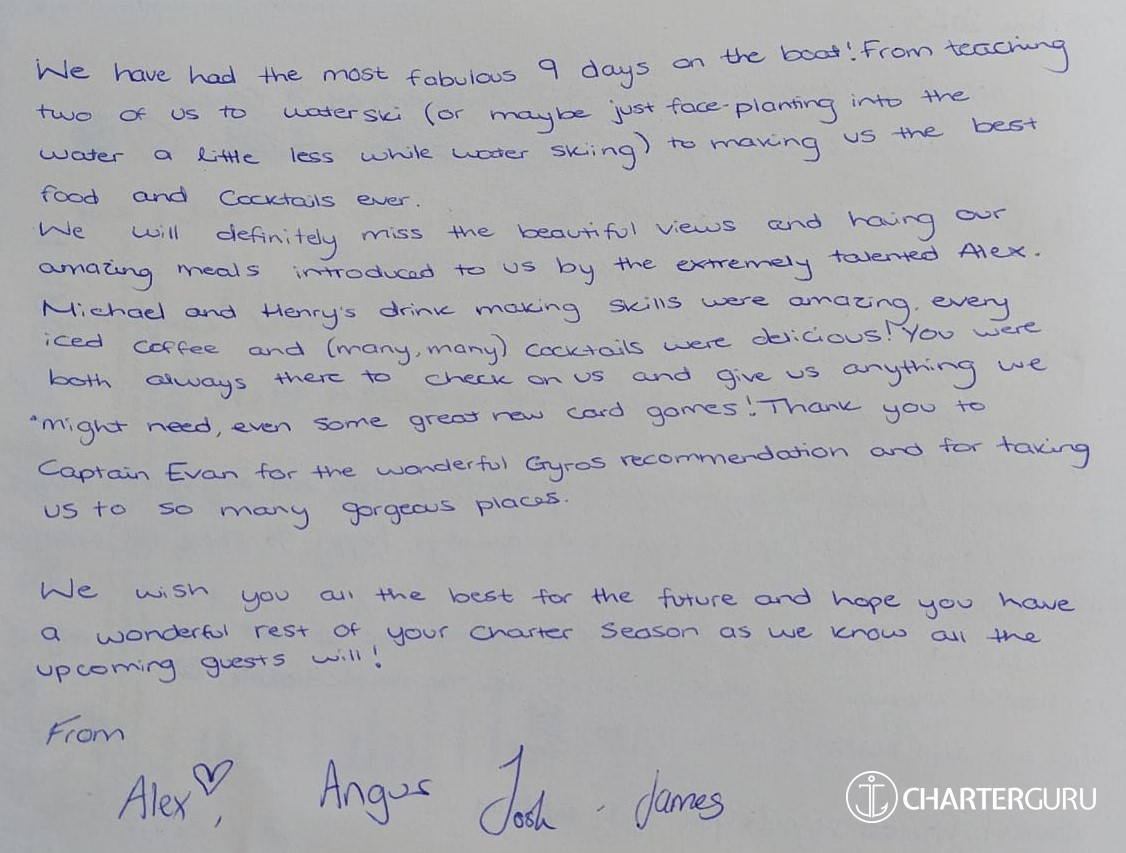 We have had the most fabulous 9 days on the boat! From teaching
two of us to waterski (or maybe just face-planting into the
water a little less while water skiing) to making us the best
food and Cocktails ever.
We will definitely miss the beautiful views and having our
amazing meals introduced to us by the extremely talented Alex.
Michael and Henry's drink making skills were amazing, every
iced coffee and (many, many) cocktails were delicious! You were
both always there to check on us and give us anything we
might need, even some great new card games! Thank you to
Captain Evan for the wonderful Gyros recommendation and for taking
us to so many gorgeous places.
We wish you all the best for the future and hope you have
a wonderful rest of your charter season as we know all the
upcoming guests will!
From
Alex♡, Angus Josh . James
CHARTERGURU